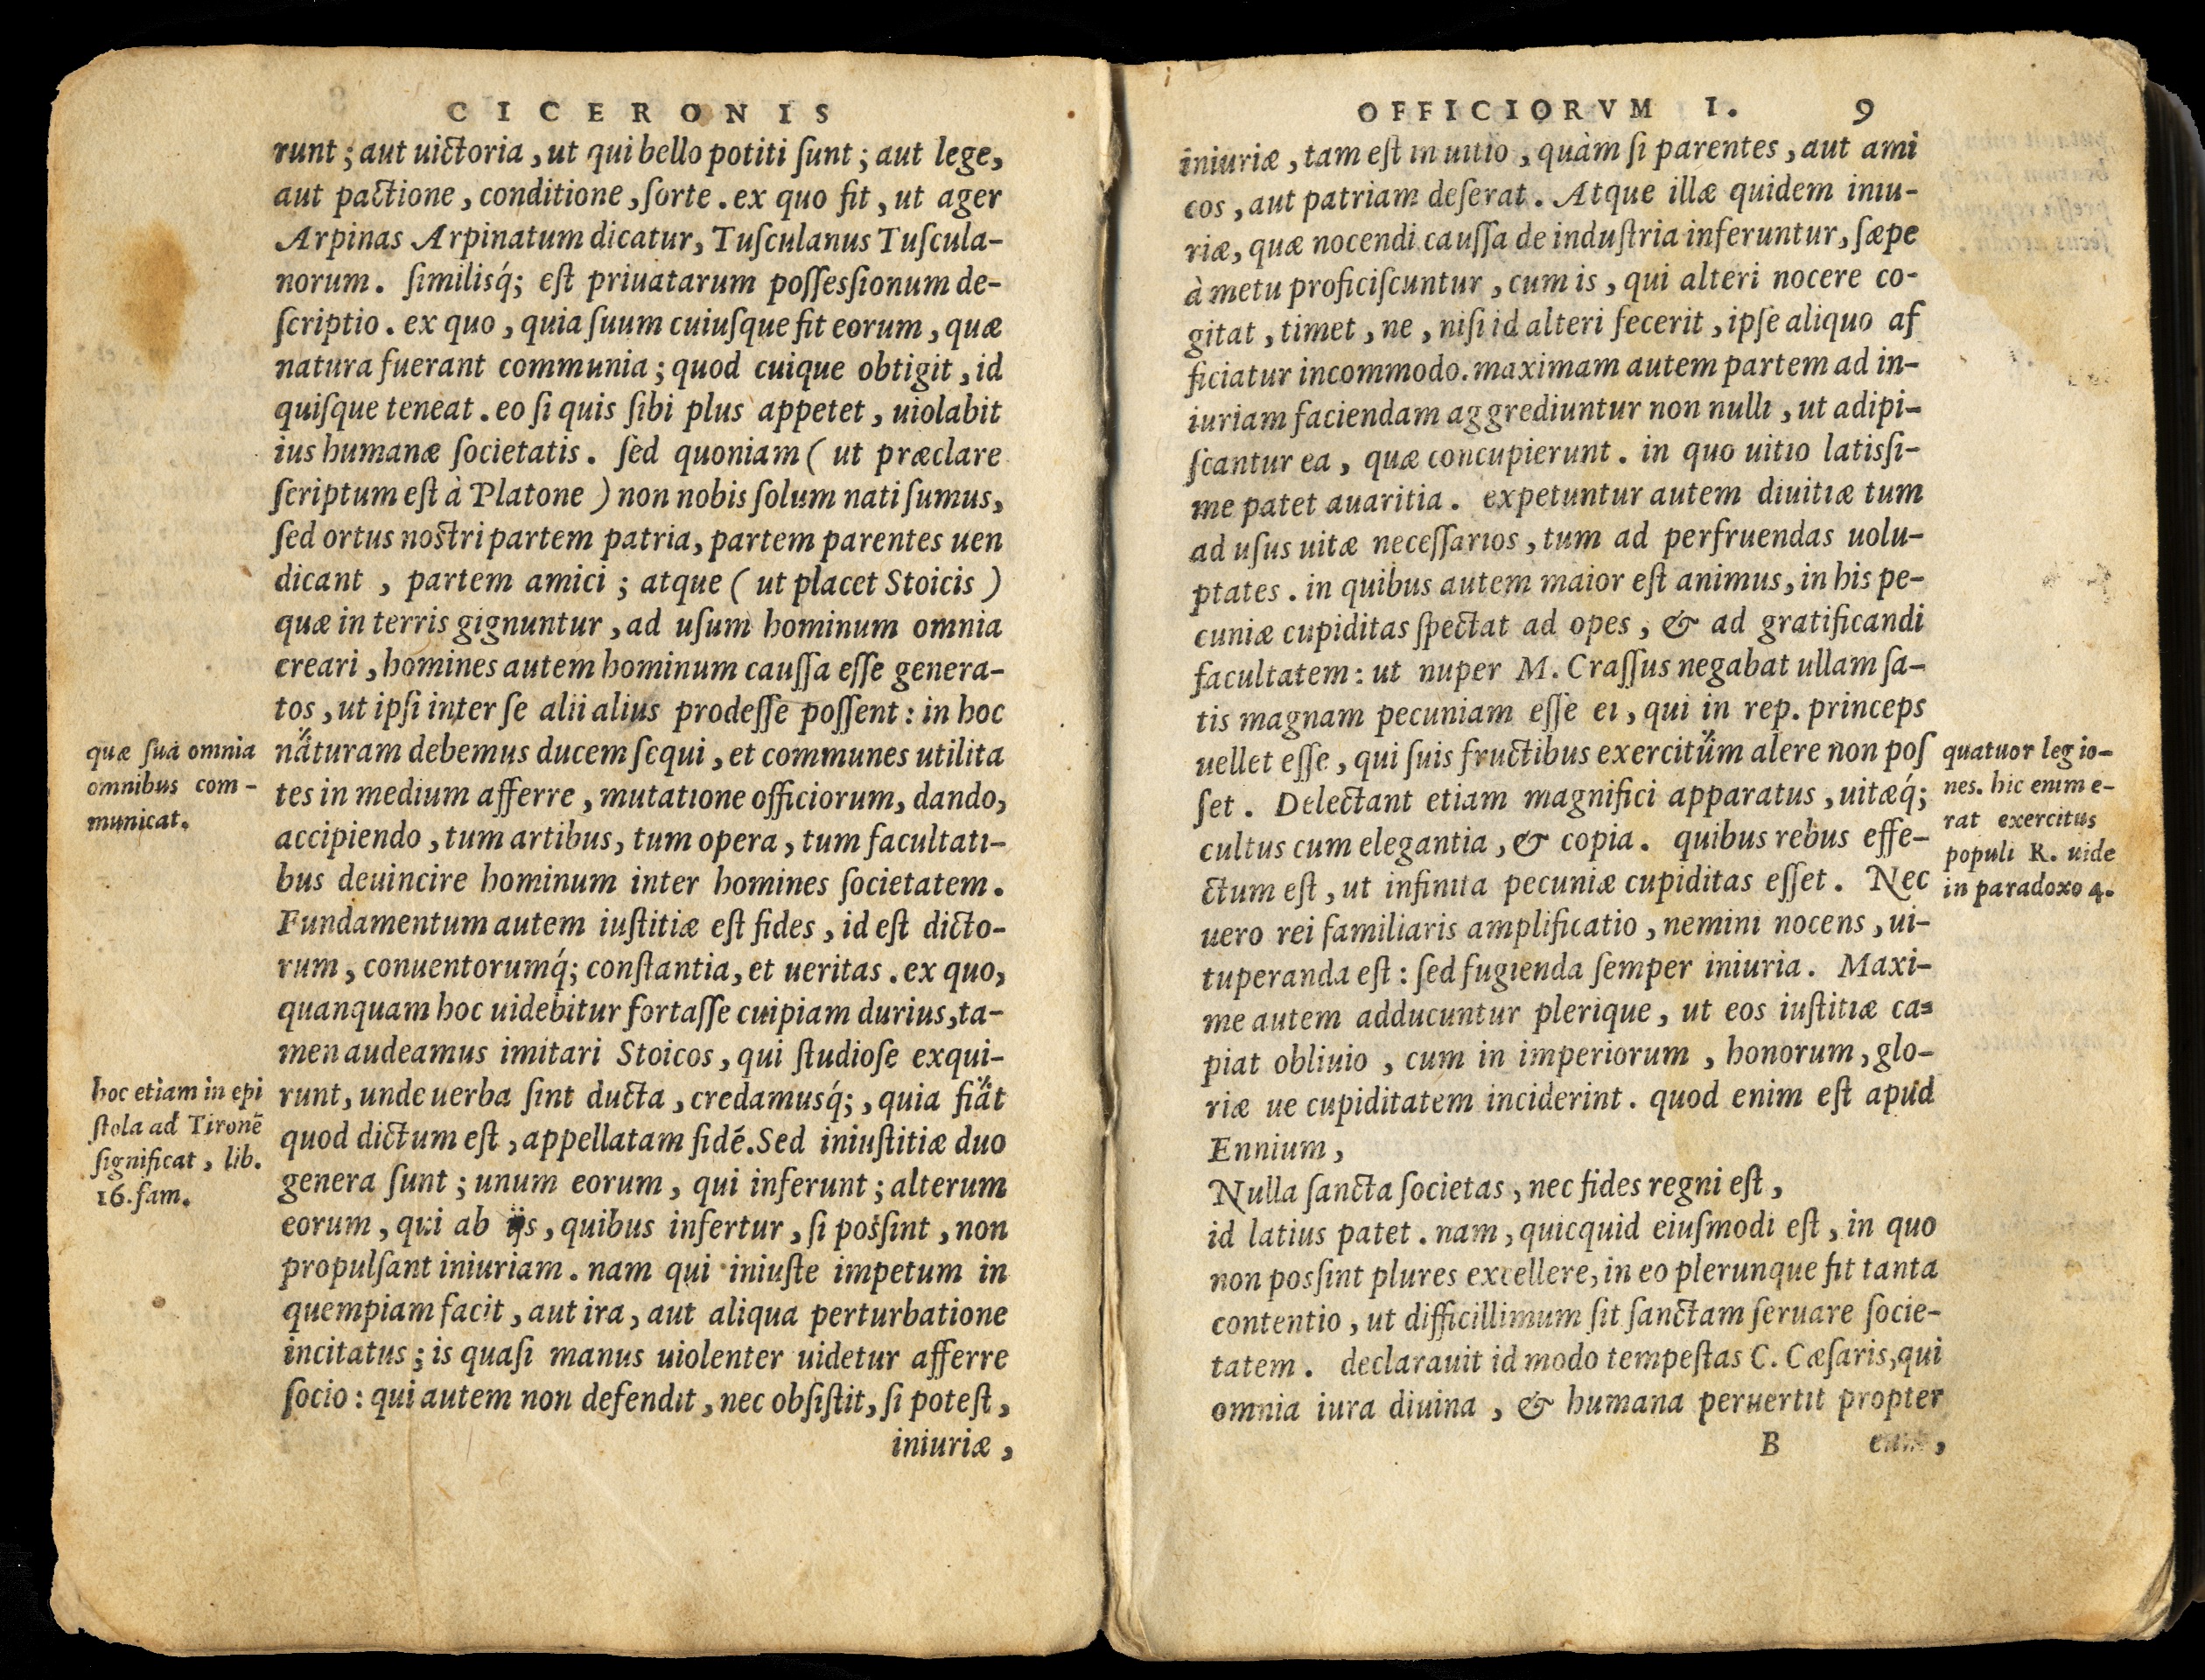 CICERONIS
runt; aut uictoria, ut qui bello potiti ſunt; aut lege,
aut pactione, conditione, ſorte. ex quo fit, ut ager
Arpinas Arpinatum dicatur, Tuſculanus Tuſcula-
norum. ſimilisq́; eſt priuatarum poſſesſionum de-
ſcriptio. ex quo, quia ſuum cuiuſque fit eorum, quæ
natura fuerant communia; quod cuique obtigit, id
quiſque teneat. eo ſi quis ſibi plus appetet, uiolabit
ius humanæ ſocietatis. ſed quoniam ( ut præclare
ſcriptum eſt à Platone ) non nobis ſolum nati ſumus,
ſed ortus nostri partem patria, partem parentes uen
dicant, partem amici; atque ( ut placet Stoicis )
quæ in terris gignuntur, ad uſum hominum omnia
creari, homines autem hominum cauſſa eſſe genera-
tos, ut ipſi inter ſe alii alius prodeſſe poſſent: in hoc
naturam debemus ducem ſequi, et communes utilita
tes in medium afferre, mutatione officiorum, dando,
accipiendo, tum artibus, tum opera, tum facultati-
bus deuincire hominum inter homines ſocietatem.
Fundamentum autem iuſtitiæ eſt fides, id eſt dicto-
rum, conuentorumq́; conſtantia, et ueritas. ex quo,
quanquam hoc uidebitur fortaſſe cuipiam durius, ta-
men audeamus imitari Stoicos, qui ſtudioſe exqui-
runt, unde uerba ſint ducta, credamusq́;, quia fiat
quod dictum eſt, appellatam fidē. Sed iniuſtitiæ duo
genera ſunt; unum eorum, qui inferunt; alterum
eorum, qui ab ijs, quibus infertur, ſi posſint, non
propulſant iniuriam. nam qui iniuſte impetum in
quempiam facit, aut ira, aut aliqua perturbatione
incitatus; is quaſi manus uiolenter uidetur afferre
ſocio: qui autem non defendit, nec obſiſtit, ſi poteſt,
iniuriæ,
quæ ſua omnia
omnibus com-
municat.
hoc etiam in epi
ſtola ad Tironē
ſignificat, lib.
16. fam.
OFFICIORVM I. 9
iniuriæ, tam eſt in uitio, quàm ſi parentes, aut ami
cos, aut patriam deſerat. Atque illæ quidem iniu-
riæ, quæ nocendi cauſſa de induſtria inferuntur, ſæpe
à metu proficiſcuntur, cum is, qui alteri nocere co-
gitat, timet, ne, niſi id alteri fecerit, ipſe aliquo af
ficiatur incommodo. maximam autem partem ad in-
iuriam faciendam aggrediuntur non nulli, ut adipi-
ſcantur ea, quæ concupierunt. in quo uitio latisſi-
me patet auaritia. expetuntur autem diuitiæ tum
ad uſus uitæ neceſſarios, tum ad perfruendas uolu-
ptates. in quibus autem maior eſt animus, in his pe-
cuniæ cupiditas ſpectat ad opes, & ad gratificandi
facultatem: ut nuper M. Craſſus negabat ullam ſa-
tis magnam pecuniam eſſe ei, qui in rep. princeps
uellet eſſe, qui ſuis fructibus exercitum alere non poſ
ſet. Delectant etiam magnifici apparatus, uitæq́;
cultus cum elegantia, & copia. quibus rebus effe-
ctum eſt, ut infinita pecuniæ cupiditas eſſet. Nec
uero rei familiaris amplificatio, nemini nocens, ui-
tuperanda eſt: ſed fugienda ſemper iniuria. Maxi-
me autem adducuntur plerique, ut eos iuſtitiæ ca-
piat obliuio, cum in imperiorum, honorum, glo-
riæ ue cupiditatem inciderint. quod enim eſt apud
Ennium,
Nulla ſancta ſocietas, nec fides regni eſt,
id latius patet. nam, quicquid eiuſmodi eſt, in quo
non posſint plures excellere, in eo plerunque fit tanta
contentio, ut difficillimum ſit ſanctam ſeruare ſocie-
tatem. declarauit id modo tempeſtas C. Cæſaris, qui
omnia iura diuina, & humana peruertit propter
B
quatuor legio-
nes. hic enim e-
rat exercitus
populi R. uide
in paradoxo 4.